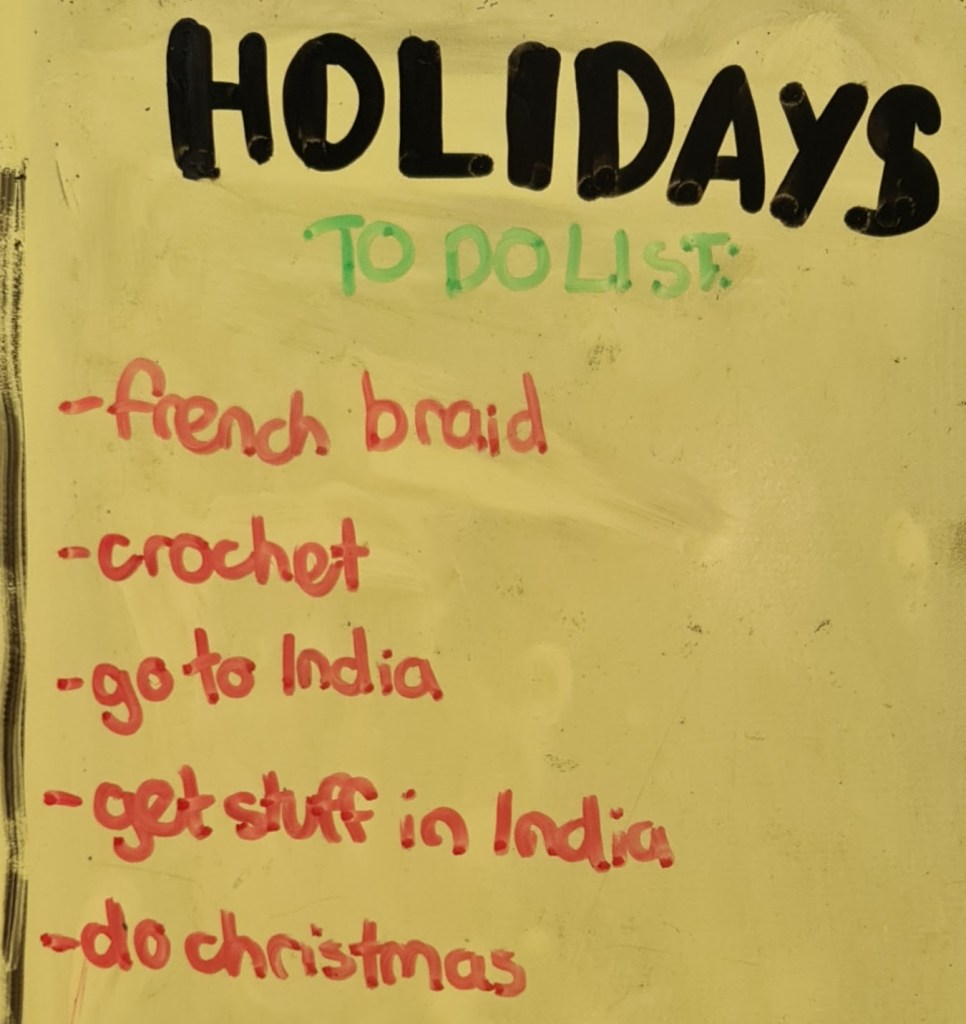 HOLIDAYS
TO DO LIST:
-french braid
-crochet
-go to India
-get stuff in India
-do christmas